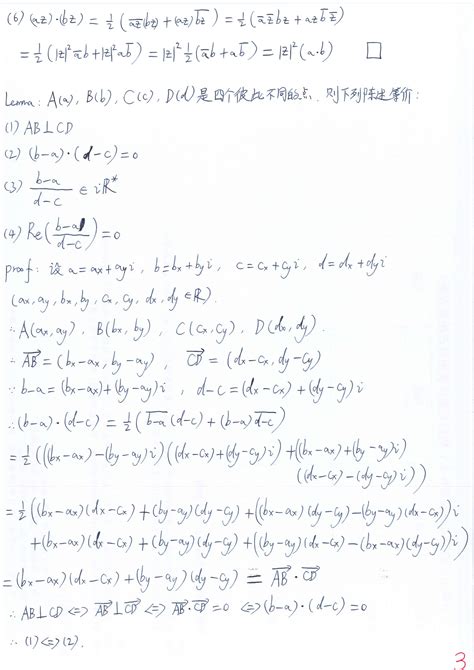 (6) (az)·(bz) = 1/2 (\overline{az}(bz) + (az)\overline{bz}) = 1/2 (\overline{a}\overline{z}bz + az\overline{b}\overline{z})
= 1/2 (|z|²\overline{a}b + |z|²a\overline{b}) = |z|² 1/2 (\overline{a}b + a\overline{b}) = |z|²(a·b) □
Lemma: A(a), B(b), C(c), D(d)是四个彼此不同的点, 则下列陈述等价:
(1) AB⊥CD
(2) (b-a)·(d-c)=0
(3) \frac{b-a}{d-c} ∈ iℝ*
(4) Re(\frac{b-a}{d-c})=0
proof: 设 a=ax+ayi, b=bx+byi, c=cx+cyi, d=dx+dyi
(ax, ay, bx, by, cx, cy, dx, dy ∈ℝ).
∴ A(ax, ay), B(bx, by), C(cx, cy), D(dx, dy).
∴ \overrightarrow{AB} = (bx-ax, by-ay), \overrightarrow{CD} = (dx-cx, dy-cy)
∵ b-a=(bx-ax)+(by-ay)i, d-c=(dx-cx)+(dy-cy)i
∴ (b-a)·(d-c) = 1/2 (\overline{b-a}(d-c) + (b-a)\overline{d-c})
= 1/2 (((bx-ax)-(by-ay)i)((dx-cx)+(dy-cy)i) + ((bx-ax)+(by-ay)i)
((dx-cx)-(dy-cy)i))
= 1/2 ((bx-ax)(dx-cx) + (by-ay)(dy-cy) + ((bx-ax)(dy-cy)-(by-ay)(dx-cx))i
+(bx-ax)(dx-cx) + (by-ay)(dy-cy) + ((by-ay)(dx-cx)-(bx-ax)(dy-cy))i)
= (bx-ax)(dx-cx) + (by-ay)(dy-cy) = \overrightarrow{AB}·\overrightarrow{CD}
∴ AB⊥CD ⟺ \overrightarrow{AB}⊥\overrightarrow{CD} ⟺ \overrightarrow{AB}·\overrightarrow{CD}=0 ⟺ (b-a)·(d-c)=0
∴ (1)⟺(2).
3